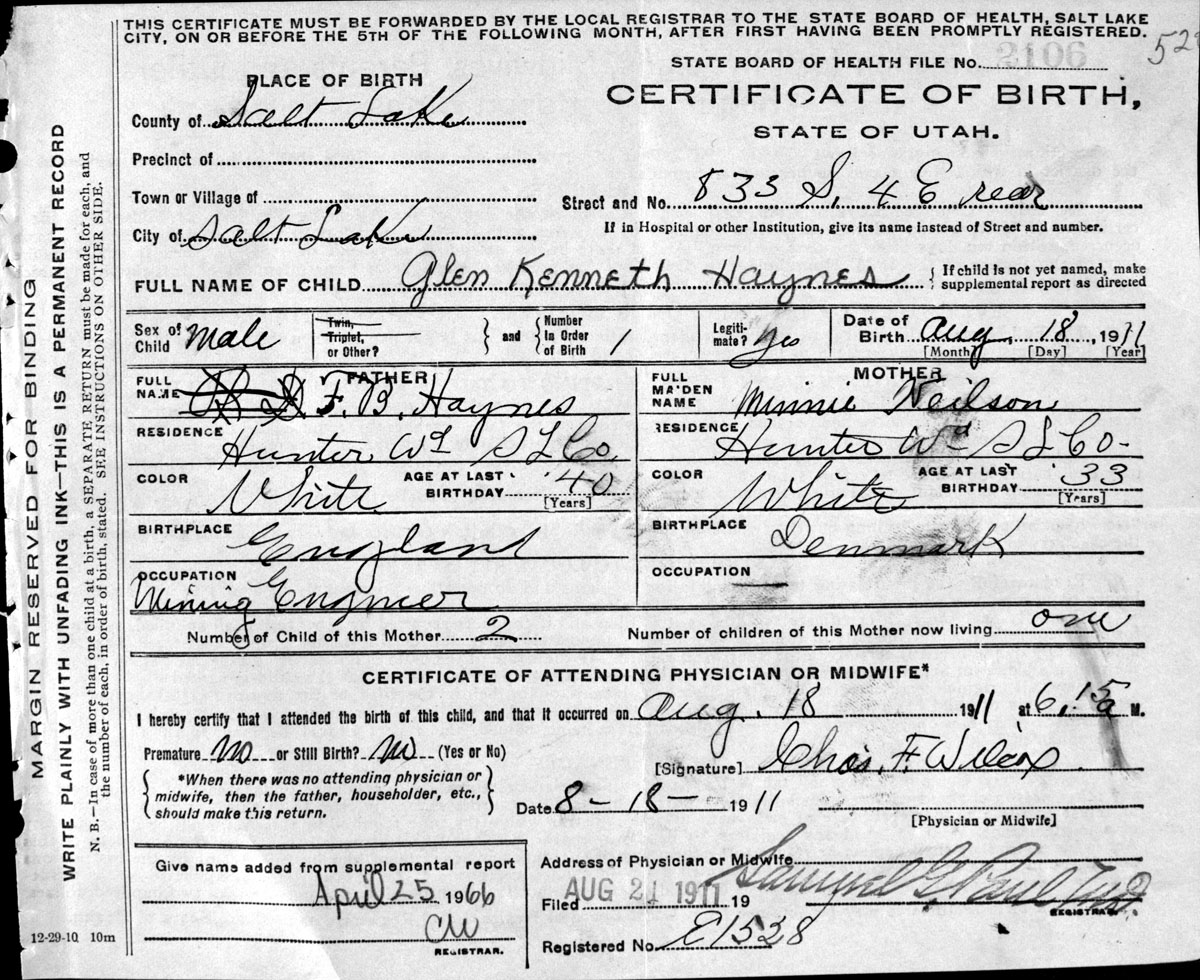 THIS CERTIFICATE MUST BE FORWARDED BY THE LOCAL REGISTRAR TO THE STATE BOARD OF HEALTH, SALT LAKE
CITY, ON OR BEFORE THE 5TH OF THE FOLLOWING MONTH, AFTER FIRST HAVING BEEN PROMPTLY REGISTERED.
STATE BOARD OF HEALTH FILE NO. 2106
PLACE OF BIRTH
CERTIFICATE OF BIRTH,
STATE OF UTAH.
County of Salt Lake
Precinct of
Town or Village of
Street and No. 833 S. 4 E rear
City of Salt Lake
If in Hospital or other Institution, give its name instead of Street and number.
FULL NAME OF CHILD Glen Kenneth Haynes { If child is not yet named, make
supplemental report as directed
Sex of Child Male Twin, Triplet, or Other? } and { Number In Order of Birth 1 Legiti- mate? yes Date of Birth Aug. 18, 1911
[Month] [Day] [Year]
FATHER MOTHER
FULL NAME F. B. Haynes FULL MAIDEN NAME Minnie Neilson
RESIDENCE Hunter Wd S L Co. RESIDENCE Hunter Wd S L Co-
COLOR White AGE AT LAST BIRTHDAY 40 [Years] COLOR White AGE AT LAST BIRTHDAY 33 [Years]
BIRTHPLACE England BIRTHPLACE Denmark
OCCUPATION Mining Engineer OCCUPATION
Number of Child of this Mother 2 Number of children of this Mother now living one
CERTIFICATE OF ATTENDING PHYSICIAN OR MIDWIFE*
I hereby certify that I attended the birth of this child, and that it occurred on Aug. 18 1911 at 6,15 a M.
Premature No or Still Birth? No (Yes or No)
[Signature] Chas. F. Wilcox
{ *When there was no attending physician or
midwife, then the father, householder, etc.,
should make this return. }
Date 8-18- 1911
[Physician or Midwife]
Give name added from supplemental report
April 25 1966
CW
REGISTRAR.
Address of Physician or Midwife
Filed AUG 21 1911 19 Samuel G. Paul
REGISTRAR.
Registered No. E1528
12-29-10 10m
MARGIN RESERVED FOR BINDING
WRITE PLAINLY WITH UNFADING INK—THIS IS A PERMANENT RECORD
N. B.—In case of more than one child at a birth, a SEPARATE RETURN must be made for each, and
the number of each, in order of birth, stated. SEE INSTRUCTIONS ON OTHER SIDE.